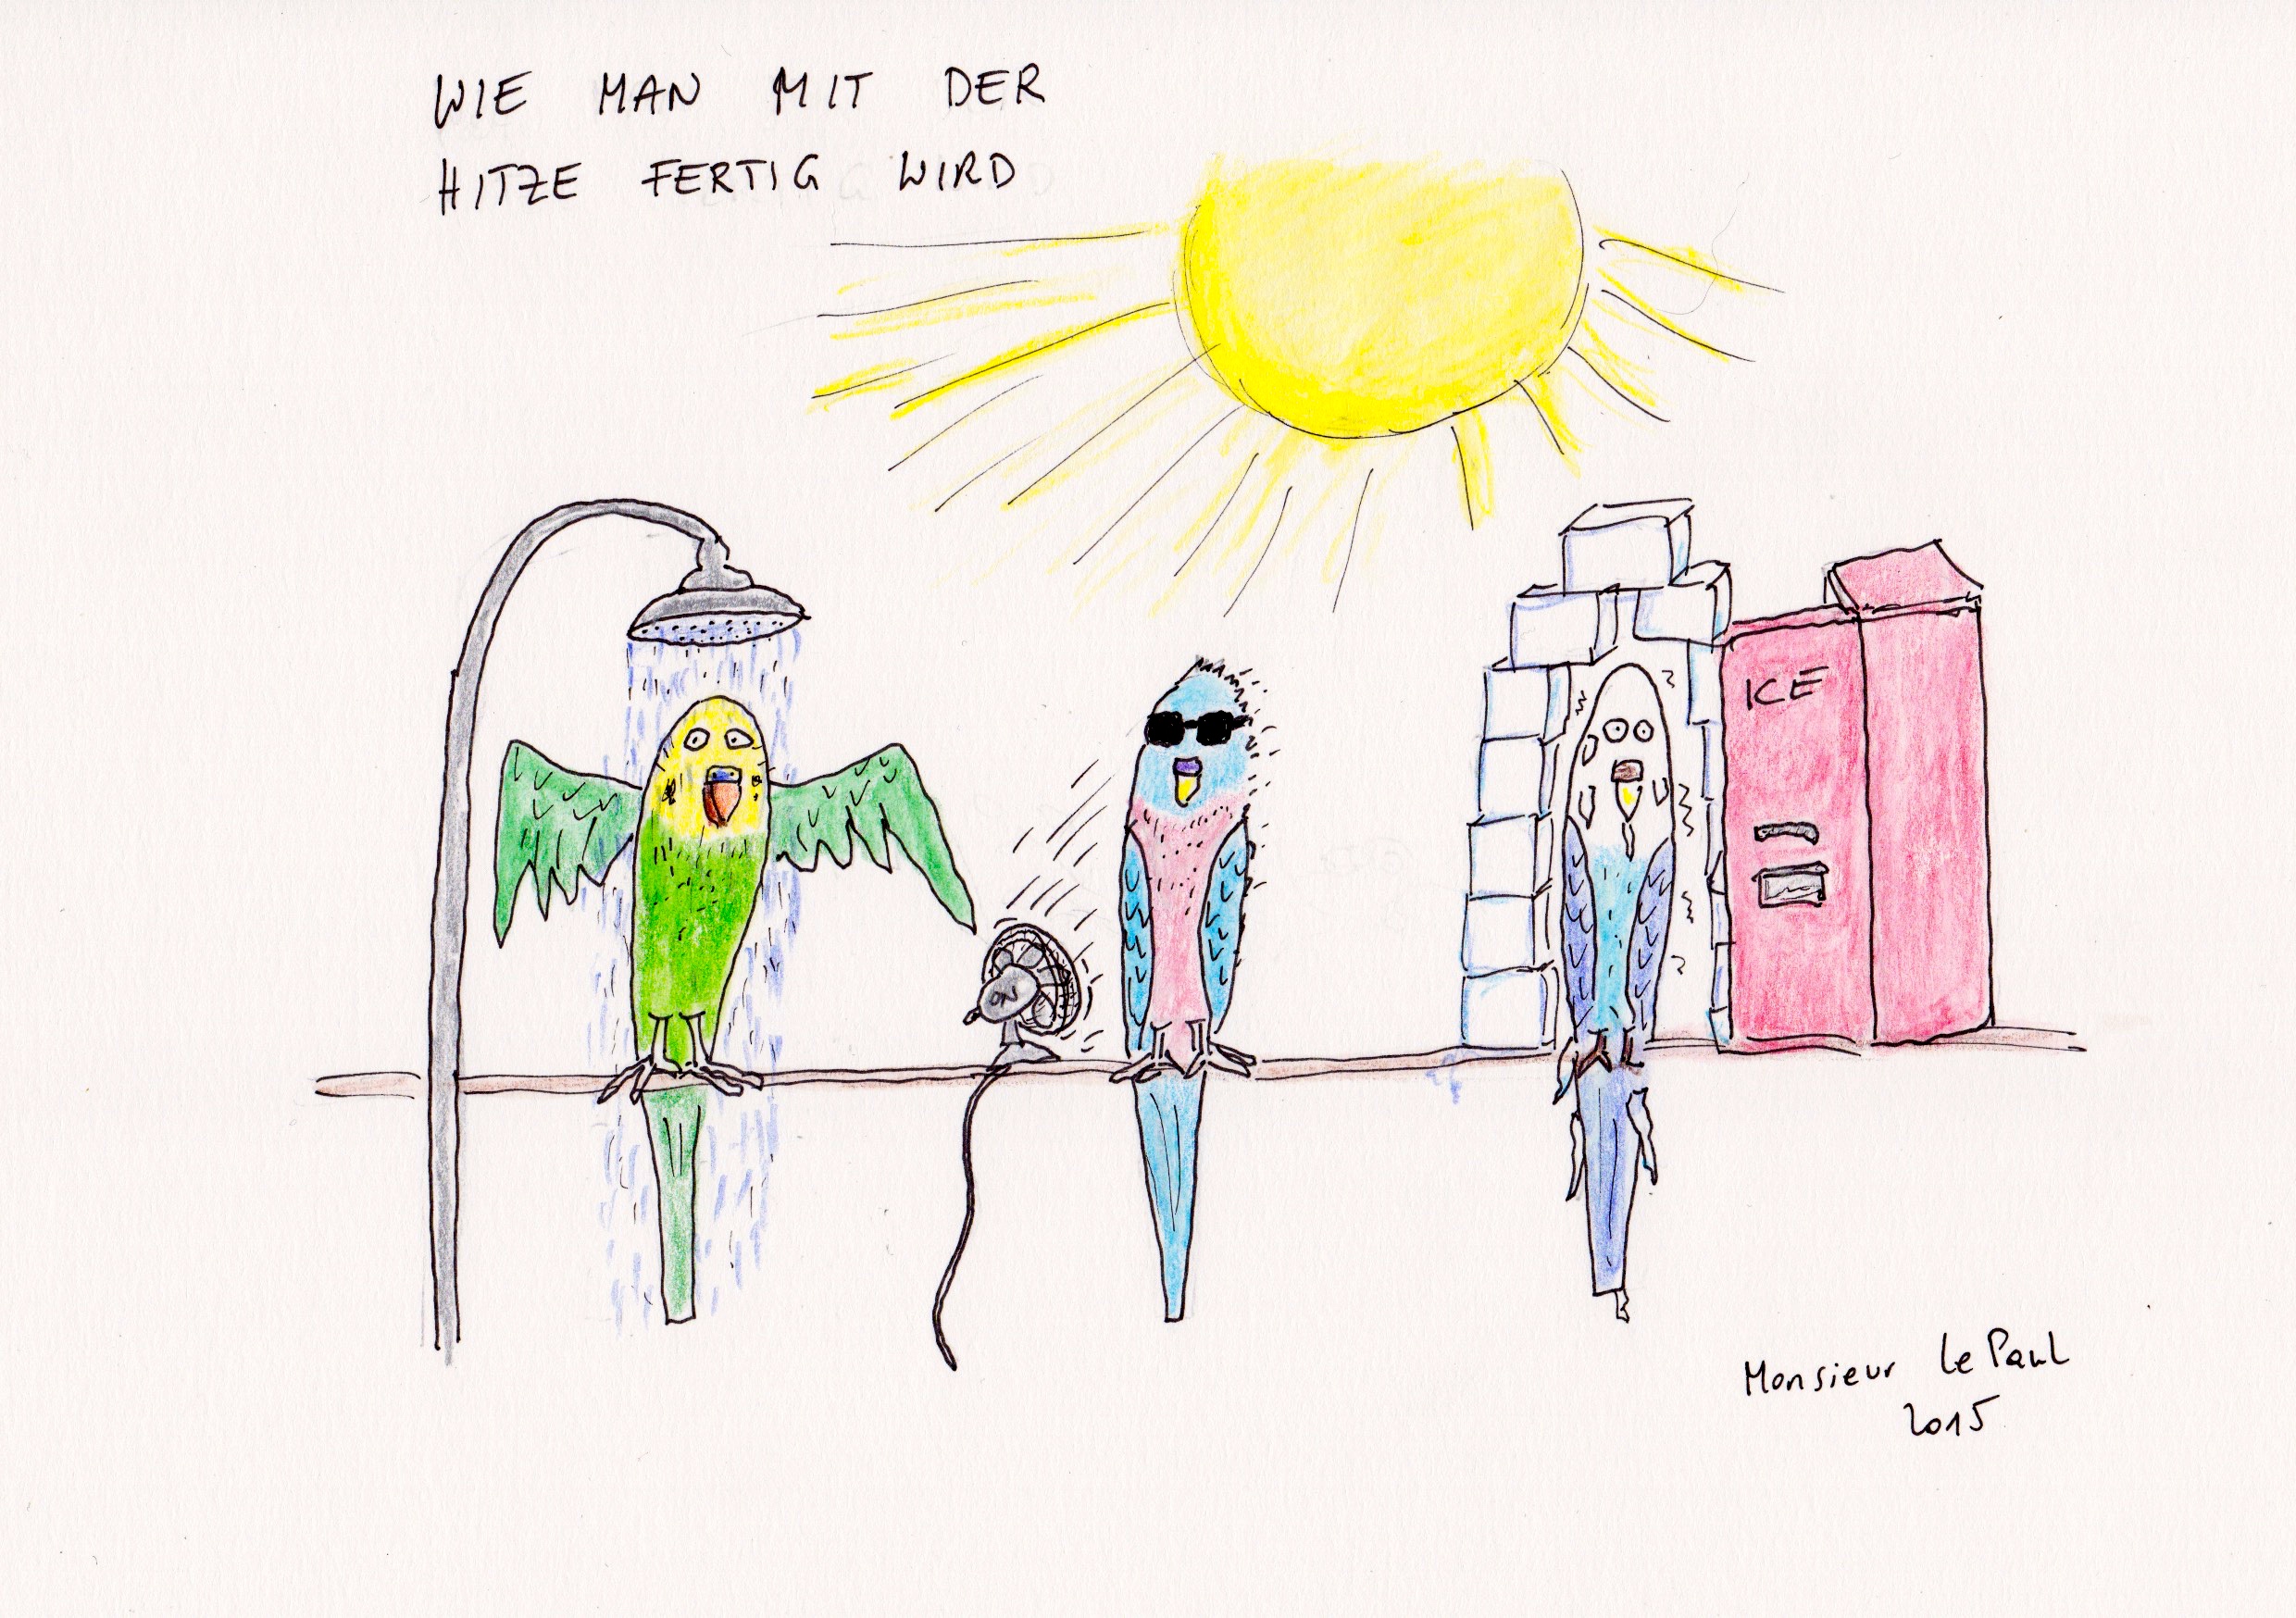 WIE MAN MIT DER
HITZE FERTIG WIRD
ICE
ON
Monsieur LePaul
2015